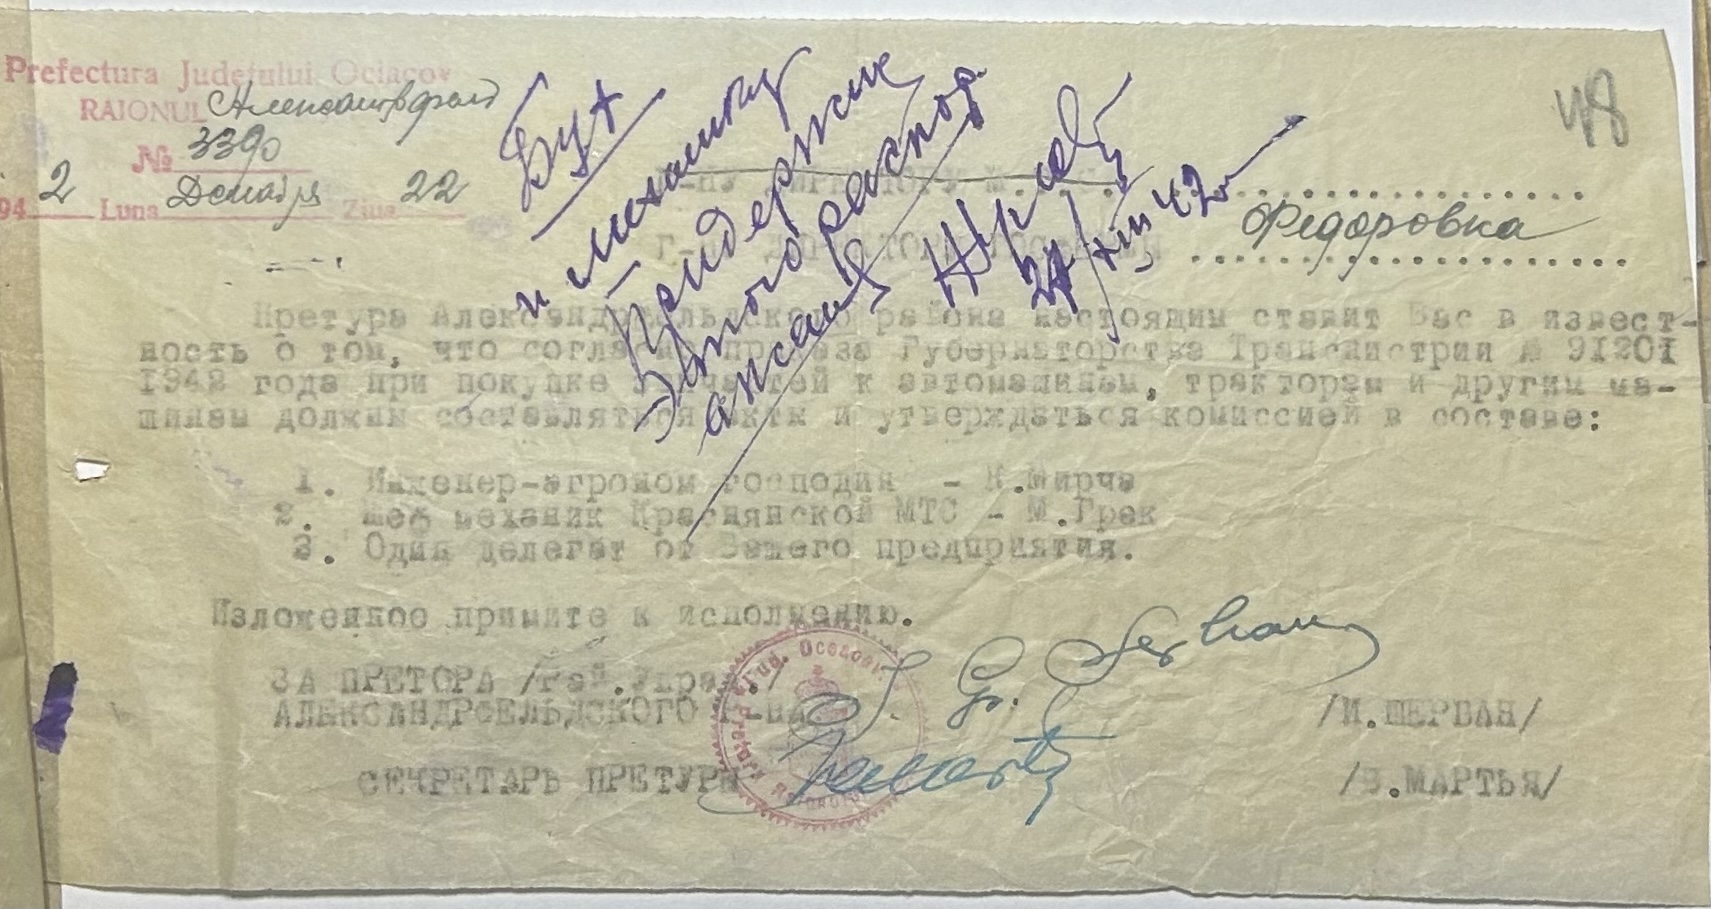 Prefectura Judeţului Ociacov
RAIONUL Александрфельд
№ 3390
194 2 Luna Декабря Ziua 22
48
Бух
и механику
Придержив
этого распор.
24/XII 42
Г-НУ
Г-
Федоровка
Претура Александрфельдского района настоящим ставит Вас в извест-
ность о том, что согласно приказа Губернаторства Транснистрии № 91201
1942 года при покупке запчастей к автомашинам, тракторам и другим ма-
шинам должны составляться акты и утверждаться комиссией в составе:
1. Инженер-агроном господин - К.Мирча
2. Шеф механик Краснянской МТС - М.Грек
3. Один делегат от Вашего предприятия.
Изложенное примите к исполнению.
ЗА ПРЕТОРА /Рай.Упра
АЛЕКСАНДРФЕЛЬДСКОГО Р-НА
/И.ШЕРБАН/
Gr. Serban
СЕКРЕТАРЬ ПРЕТУРЫ
/В.МАРТЬЯ/